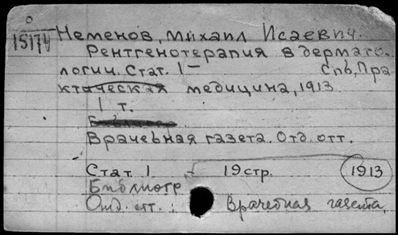 0
15174
Неменов, Михаил Исаевич.
Рентгенотерапия в дермато-
логии. Стат. 1— Спб, Пра
ктическая медицина, 1913.
1 т.
Врачебная газета. Отд. отт.
Стат. 1 — 19 стр. 1913
Библиогр
Отд. отт.: Врачебная газета,